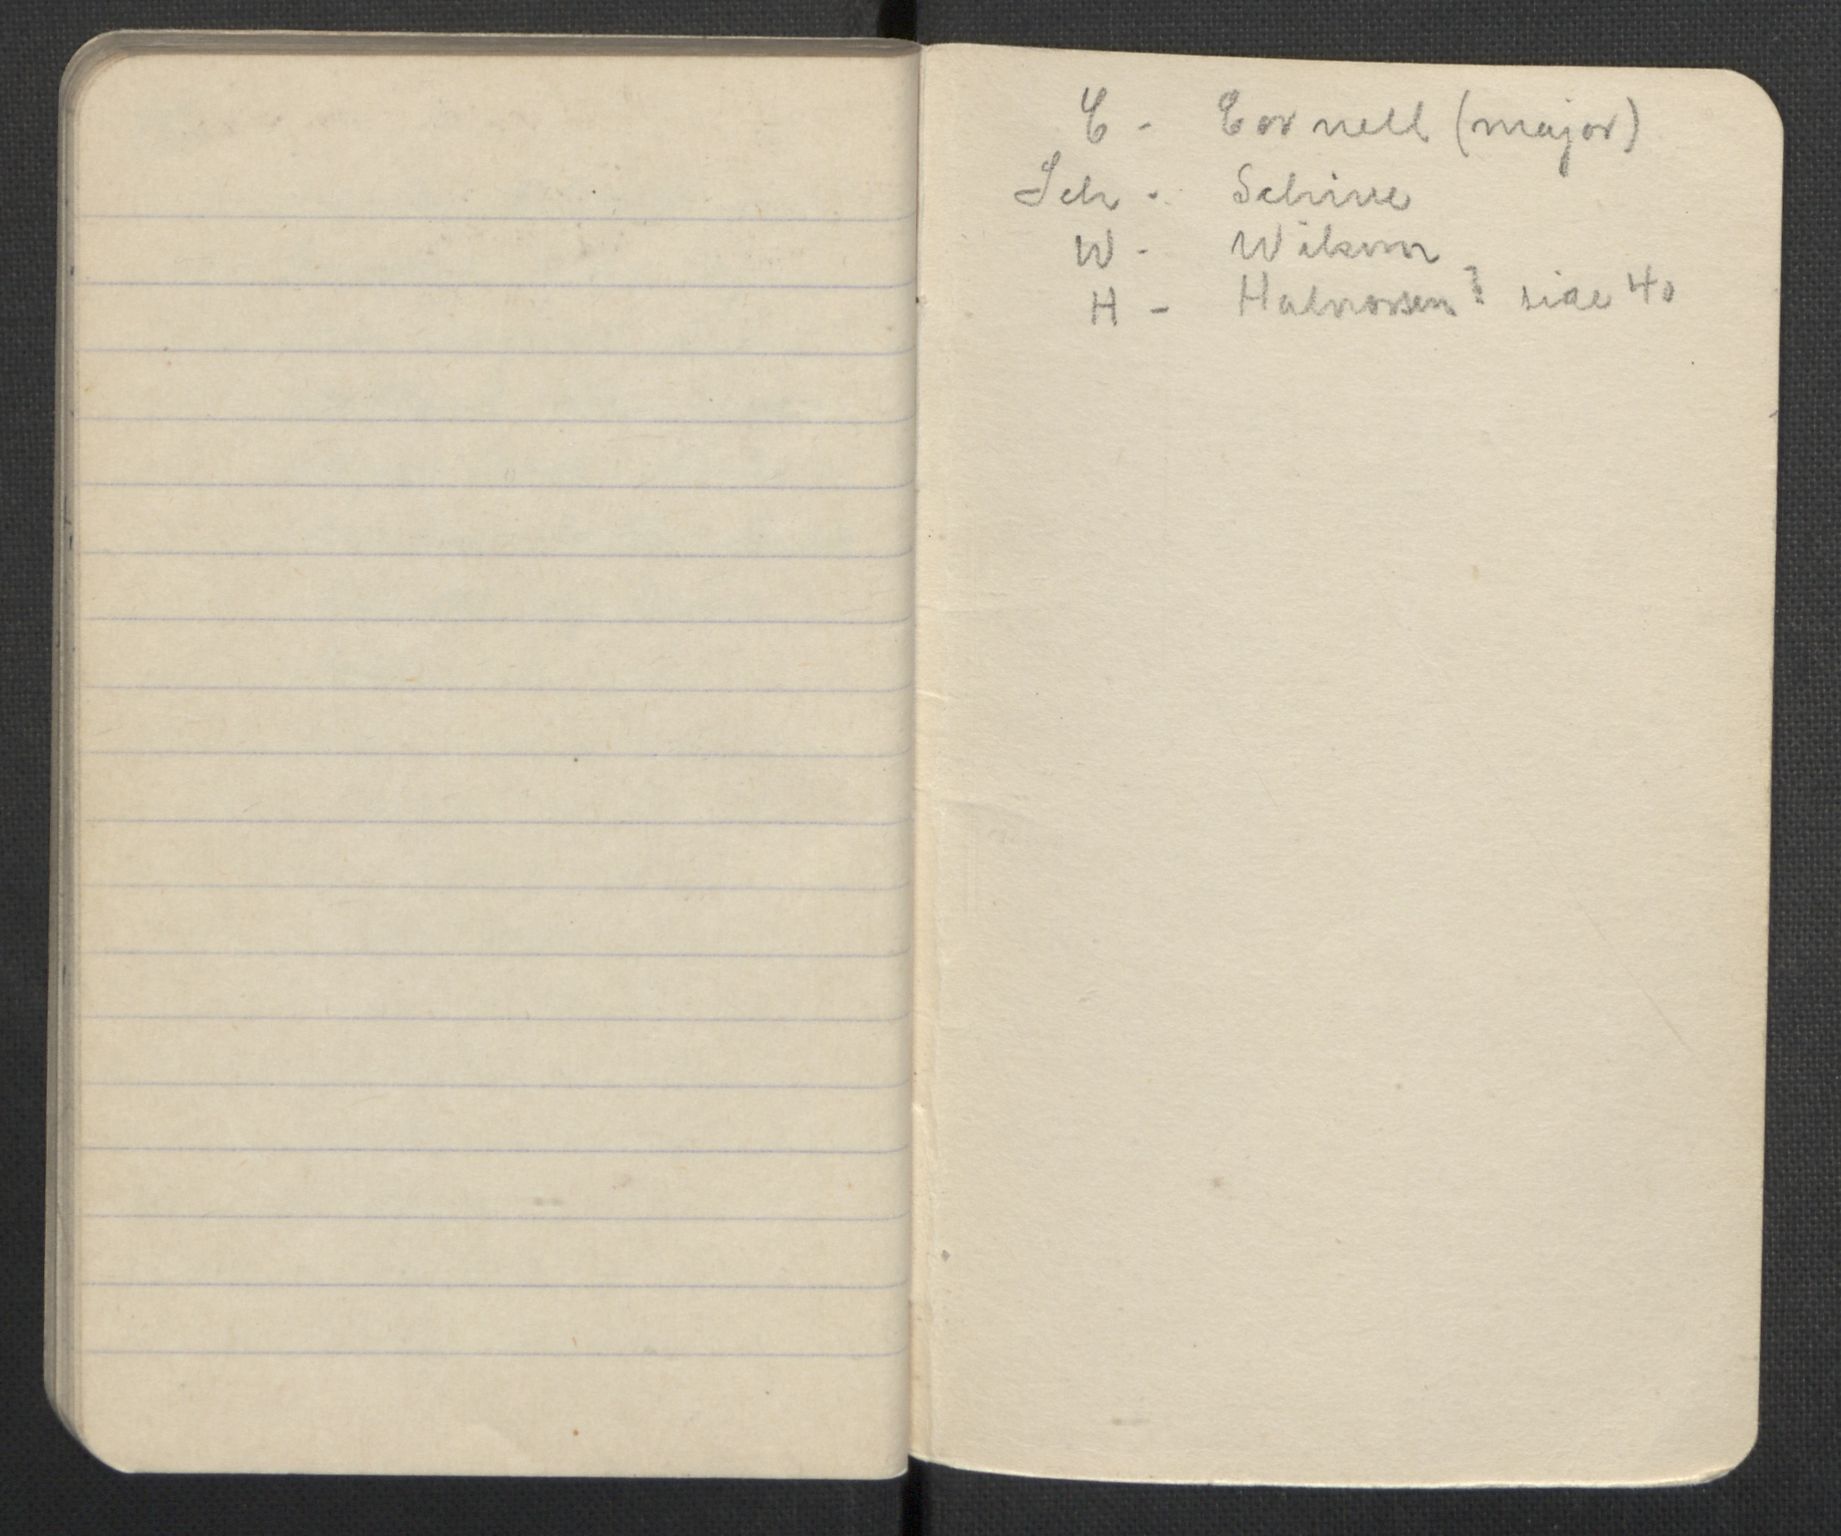 C - Cornell (major)
Sch - Schive
W - Wilson
H - Halvorsen? side 40